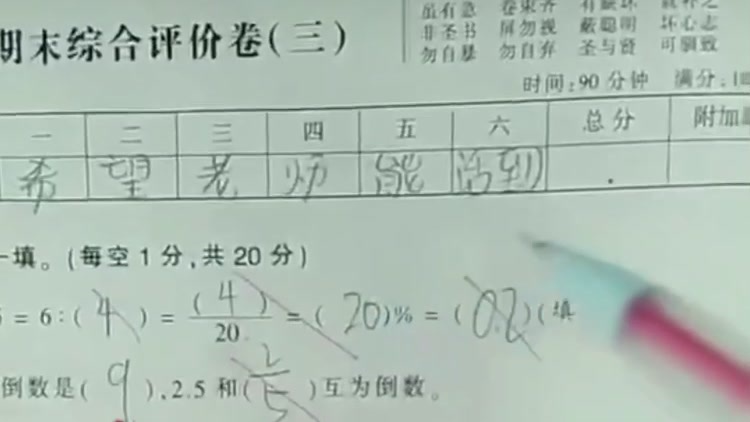 虽有急 卷束齐 有缺坏 就补之
非圣书 屏勿视 蔽聪明 坏心志
期末综合评价卷(三)
勿自暴 勿自弃 圣与贤 可驯致
时间:90分钟 满分:10
一 二 三 四 五 六 总分 附加
希 望 老 师 能 活到
一填。(每空1分,共20分)
=6:(4)=(4)/20=(20)%=(0.2)(填
倒数是(9),2.5和(2/5)互为倒数。